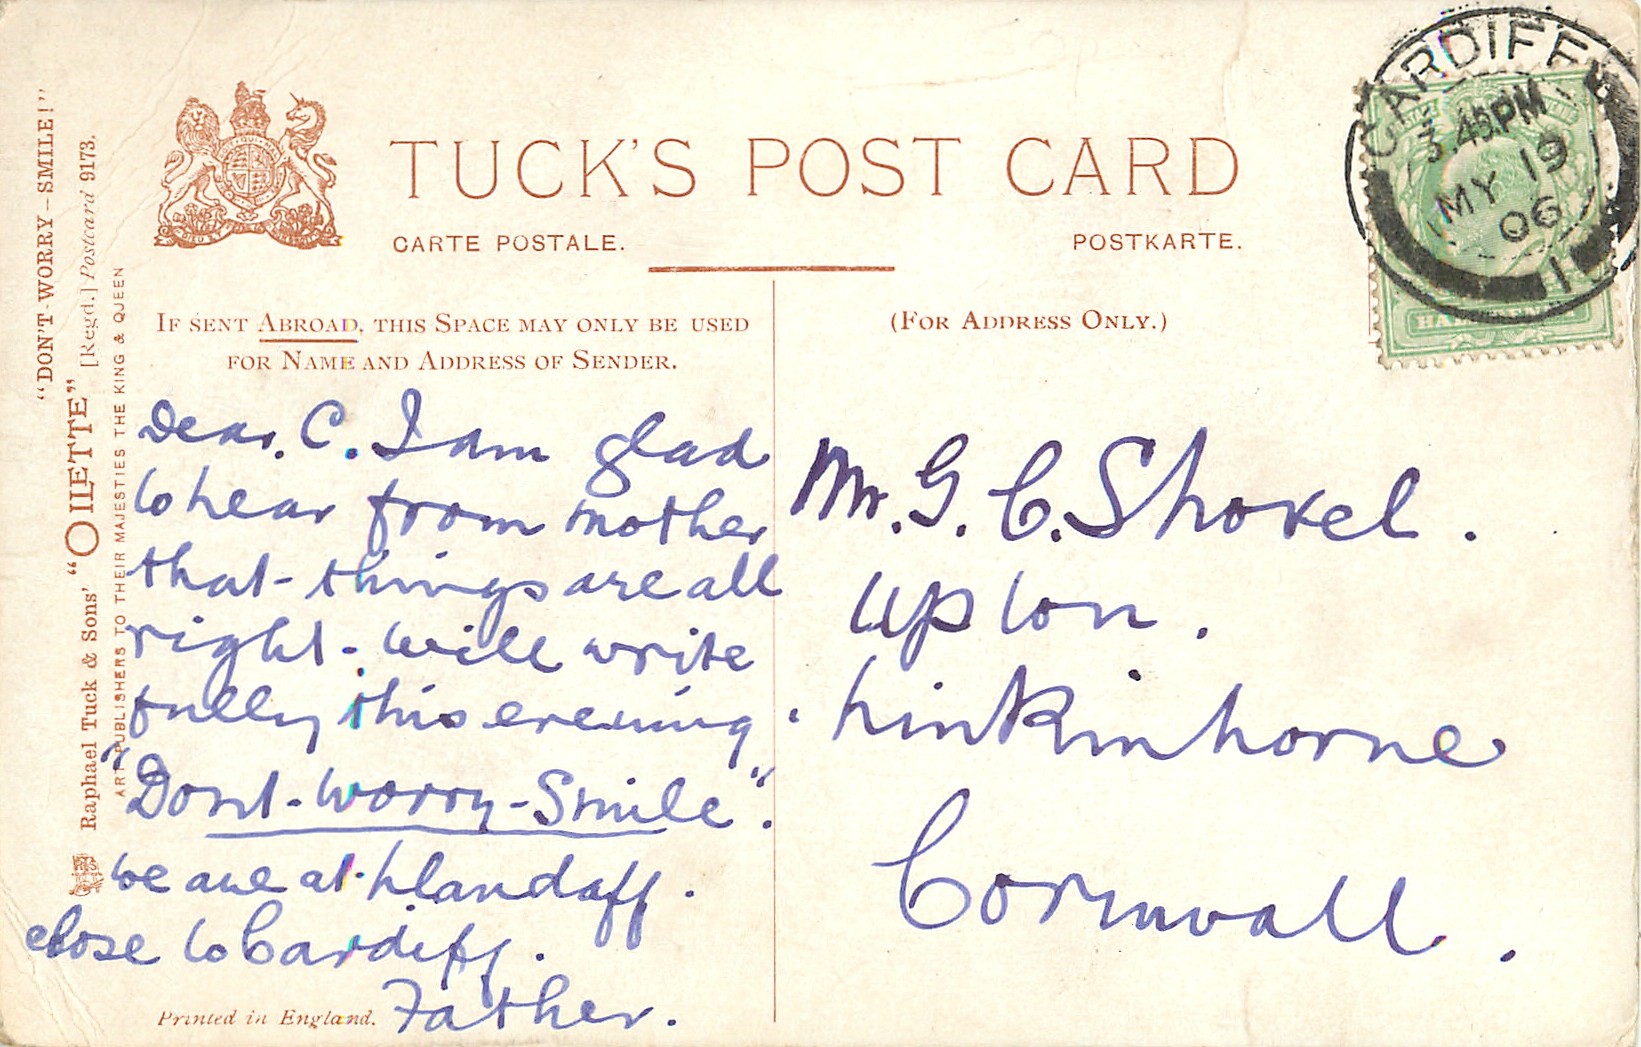 "DON'T-WORRY-SMILE!"
Raphael Tuck & Sons' "OILETTE" [Regd.] Postcard 9173.
ART PUBLISHERS TO THEIR MAJESTIES THE KING & QUEEN
TUCK'S POST CARD
CARTE POSTALE.
POSTKARTE.
IF SENT ABROAD, THIS SPACE MAY ONLY BE USED
FOR NAME AND ADDRESS OF SENDER.
(FOR ADDRESS ONLY.)
CARDIFF
3.45PM
MY 19
06
1
Dear. C. I am glad
to hear from mother
that things are all
right. Will write
fully this evening.
"Dont-Worry-Smile".
we are at Llandaff.
close to Cardiff.
Father.
Printed in England.
Mr. G. C. Shovel.
Upton.
Linkinhorne
Cornwall.